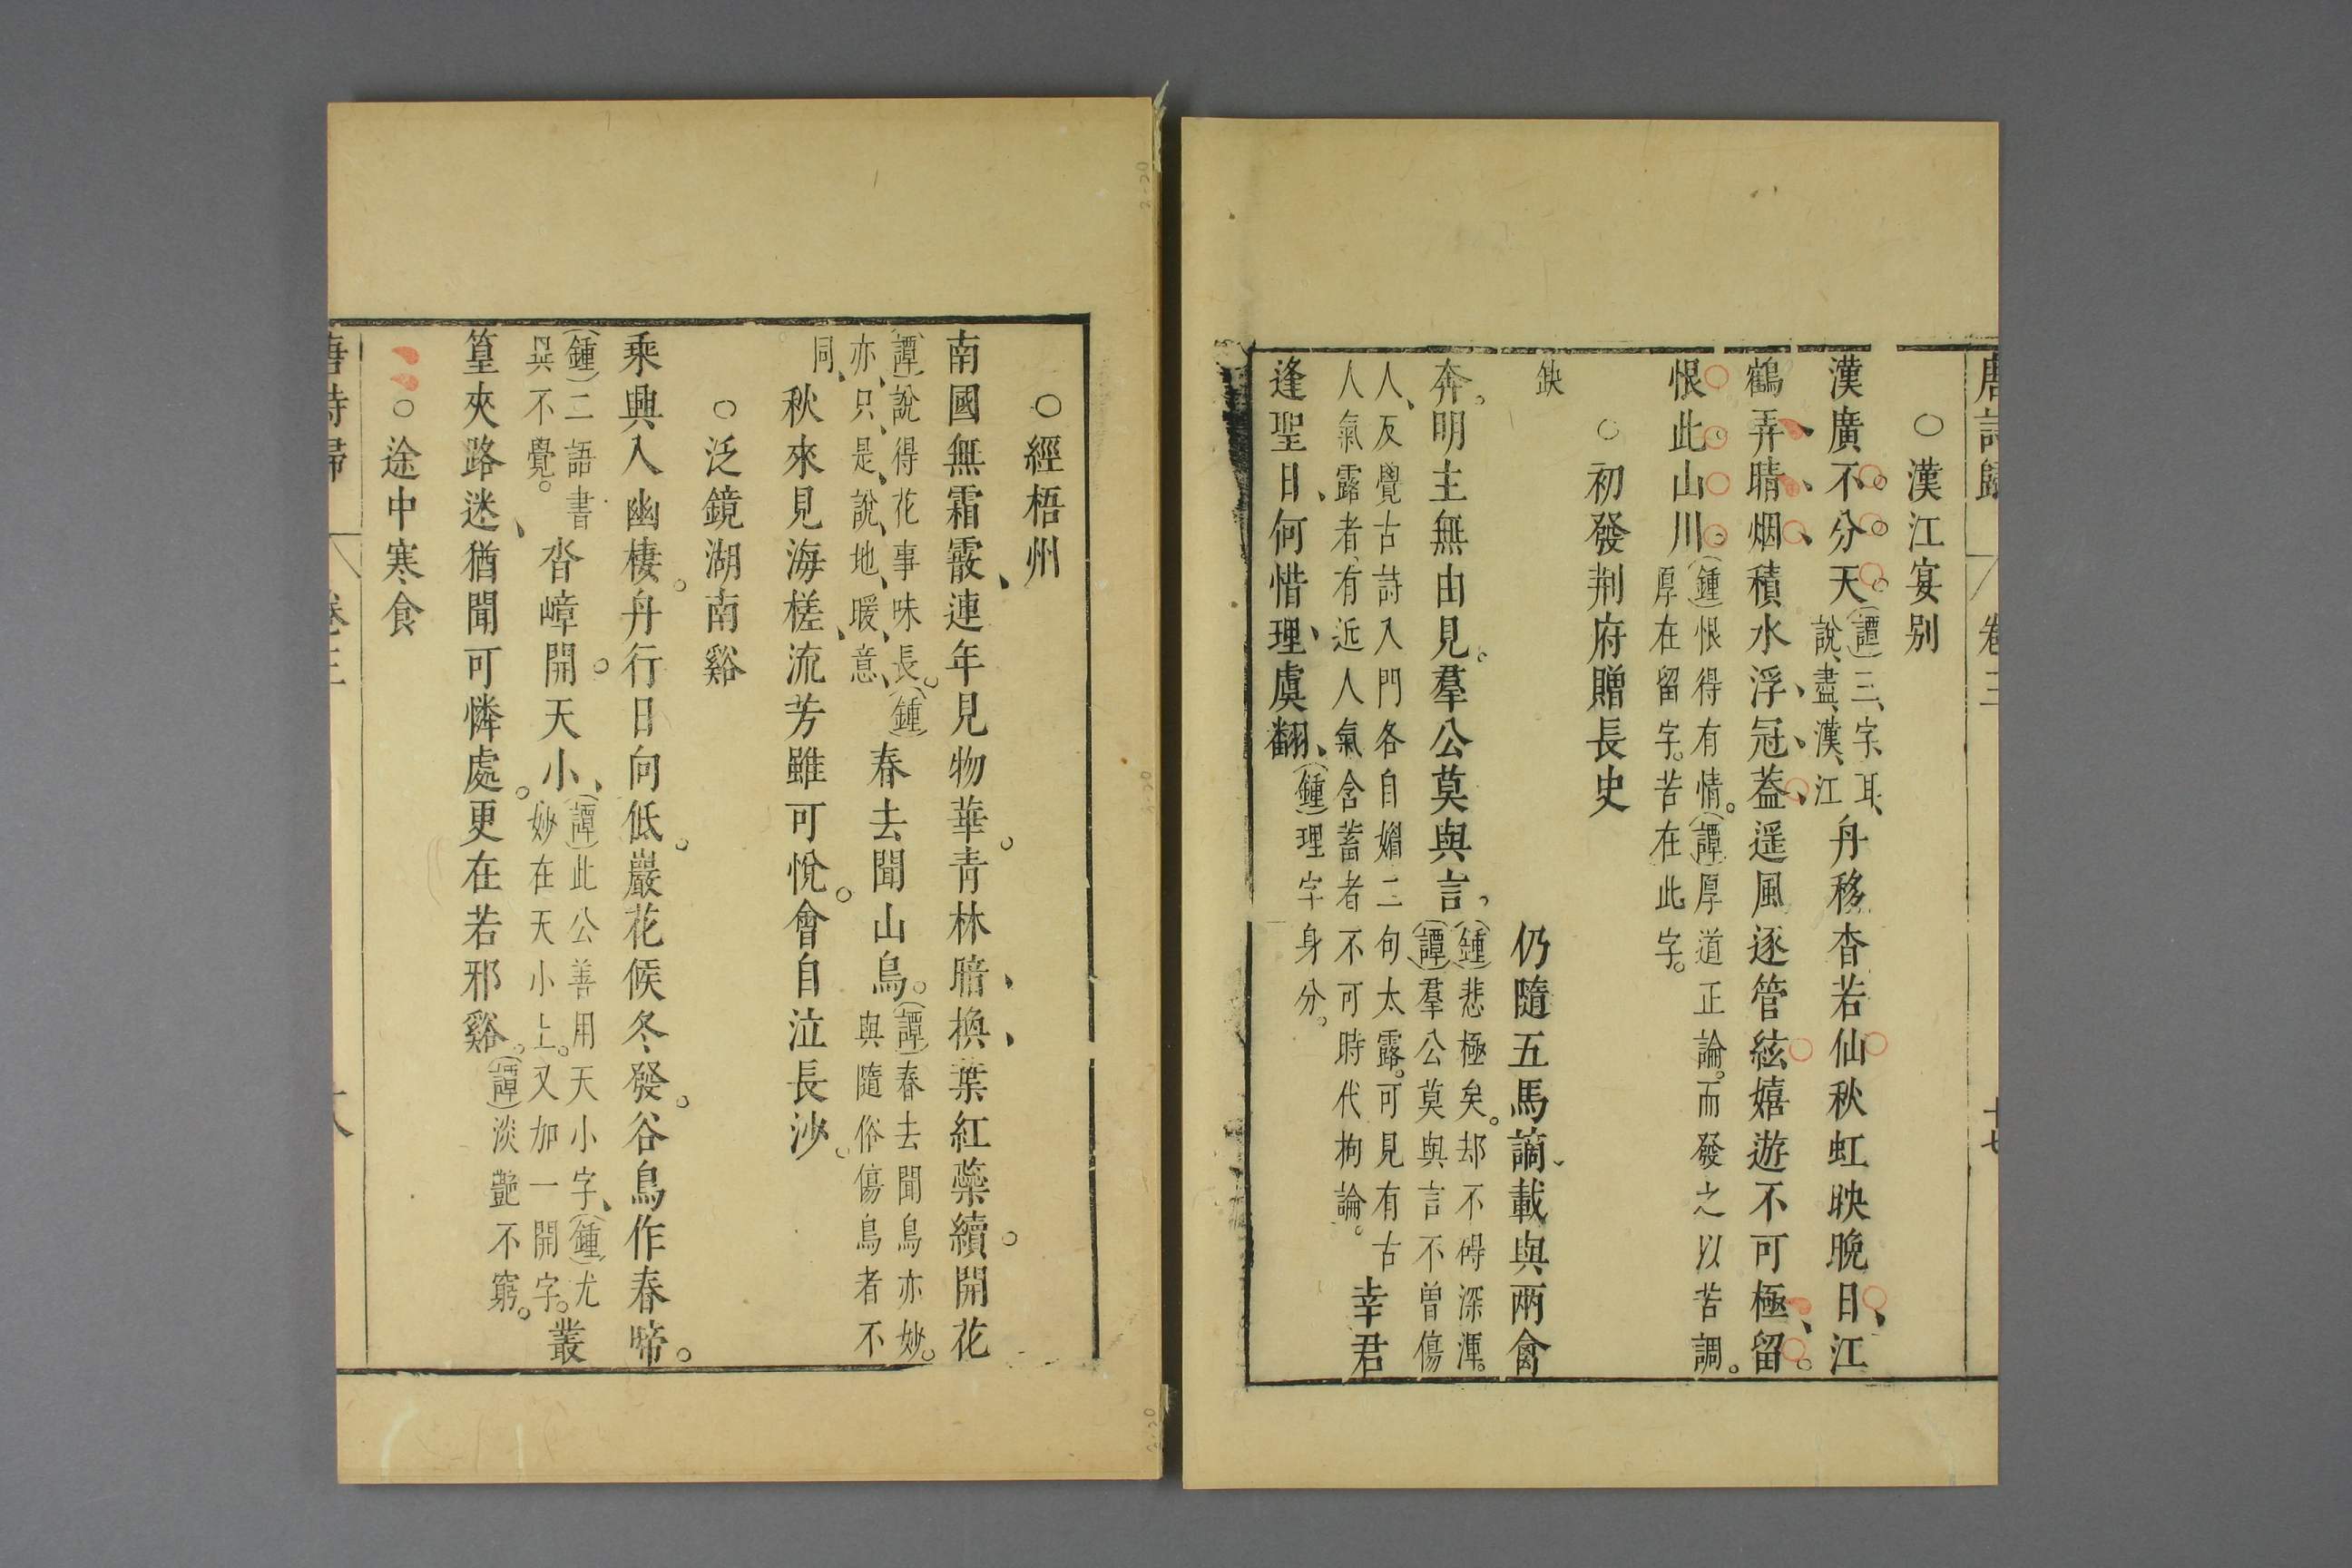 唐詩歸 卷三 十七
○漢江宴别
漢廣不分天(譚)三字耳說盡漢江舟移杳若仙秋虹映晚日江
鶴弄晴烟積水浮冠蓋遥風逐管絃嬉遊不可極留
恨此山川(鍾)恨得有情(譚)厚道正論而發之以苦調
厚在留字苦在此字
○初發荆府贈長史
缺 仍隨五馬謫載與兩禽
奔明主無由見羣公莫與言(鍾)悲極矣却不碍深渾
(譚)羣公莫與言不曽傷
人反覺古詩入門各自媚二句太露可見有古
人氣露者有近人氣含蓄者不可時代拘論幸君
逢聖日何惜理虞翻(鍾)理字身分
○經梧州
南國無霜霰連年見物華青林暗換葉紅蘂續開花
(譚)說得花事味長(鍾)
亦只是說地暖意春去聞山鳥(譚)春去聞鳥亦妙
與隨俗傷鳥者不
同秋來見海槎流芳雖可悅會自泣長沙
○泛鏡湖南谿
乘興入幽棲舟行日向低巖花候冬發谷鳥作春啼
(鍾)二語書
具不覺沓嶂開天小(譚)此公善用天小字(鍾)尤
妙在天小上又加一開字叢
篁夾路迷猶聞可憐處更在若邪谿(譚)淡艷不窮
○途中寒食
唐詩歸 卷三